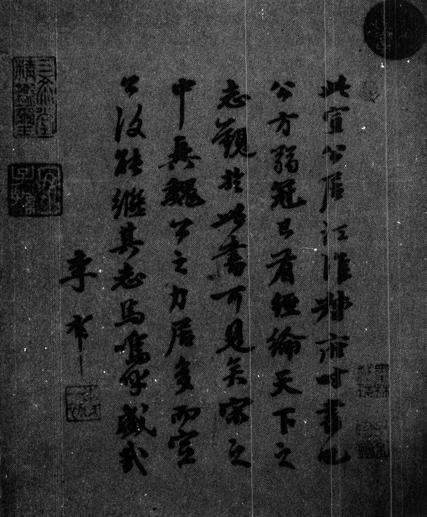 此宣公居江淮府時書也
公方弱冠已有經綸天下之
志觀於此書可見矣宋之
中興魏公之力居多而宣
公復能繼其志焉嗚呼盛哉
李
三希堂精鑑璽
宜子孫